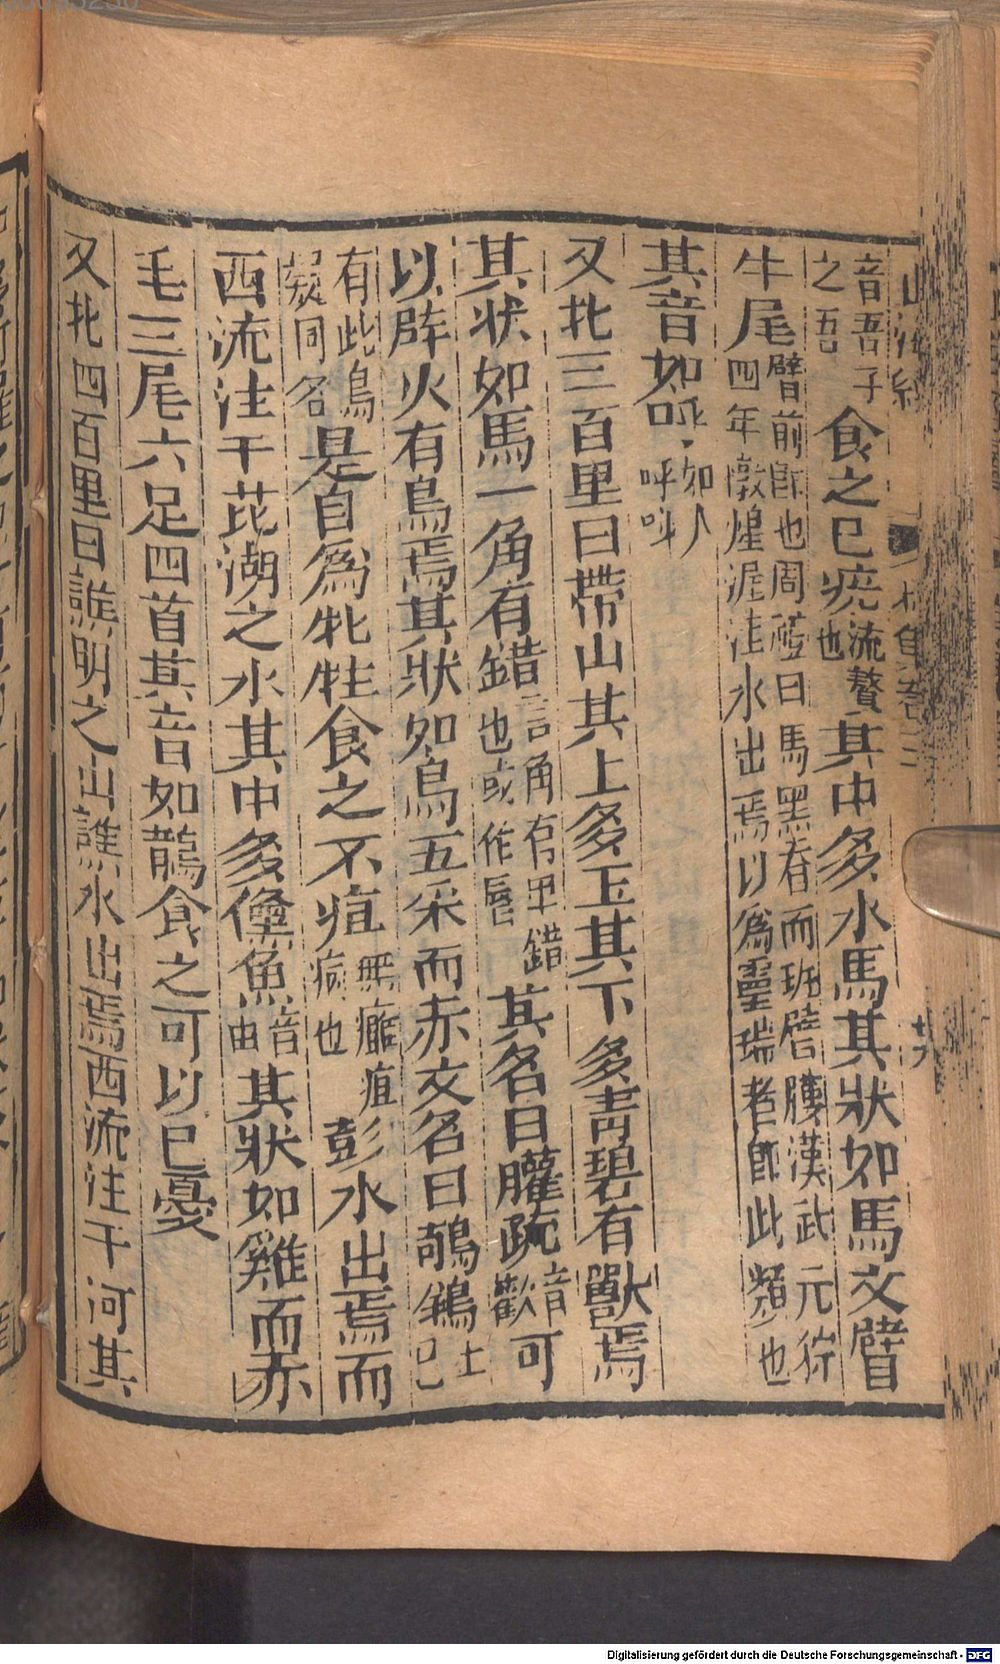 音吾子之吾食之已疣疣贅也其中多水馬其狀如馬文臂
牛尾臂前脚也周禮曰馬黑脊而班臂膢漢武元狩四年燉煌渥洼水出焉以為靈瑞者即此類也
其音如呼如人呼呌
又北三百里曰帶山其上多玉其下多青碧有獸焉
其狀如馬一角有錯言角有甲錯也或作厝其名曰䑏疏音歡可
以辟火有鳥焉其狀如烏五采而赤文名曰鵸䳜上已
有此鳥疑同名是自為牝牡食之不疽無癰疽病也彭水出焉而
西流注于芘湖之水其中多儵魚音由其狀如雞而赤
毛三尾六足四首其音如鵲食之可以已憂
又北四百里曰譙明之山譙水出焉西流注于河其
Digitalisierung gefördert durch die Deutsche Forschungsgemeinschaft - DFG